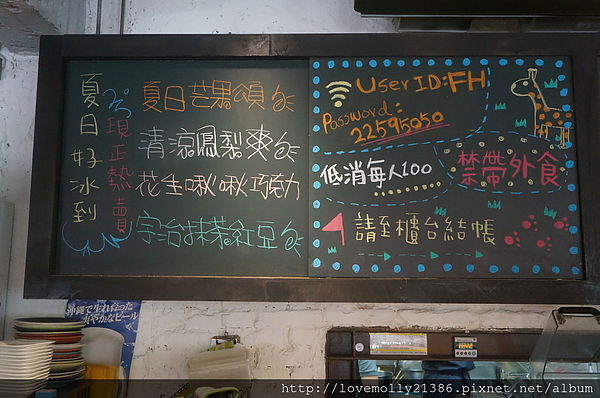 夏日好冰到
現正熱賣
夏日芒果頌
清涼鳳梨爽
花生啾啾巧克力
宇治抹茶紅豆
User ID:FH
Password:
22595050
低消每人100
禁帶外食
請至櫃台結帳
沖縄で生れ育った
爽やかなビール
http://lovemolly21386.pixnet.net/album